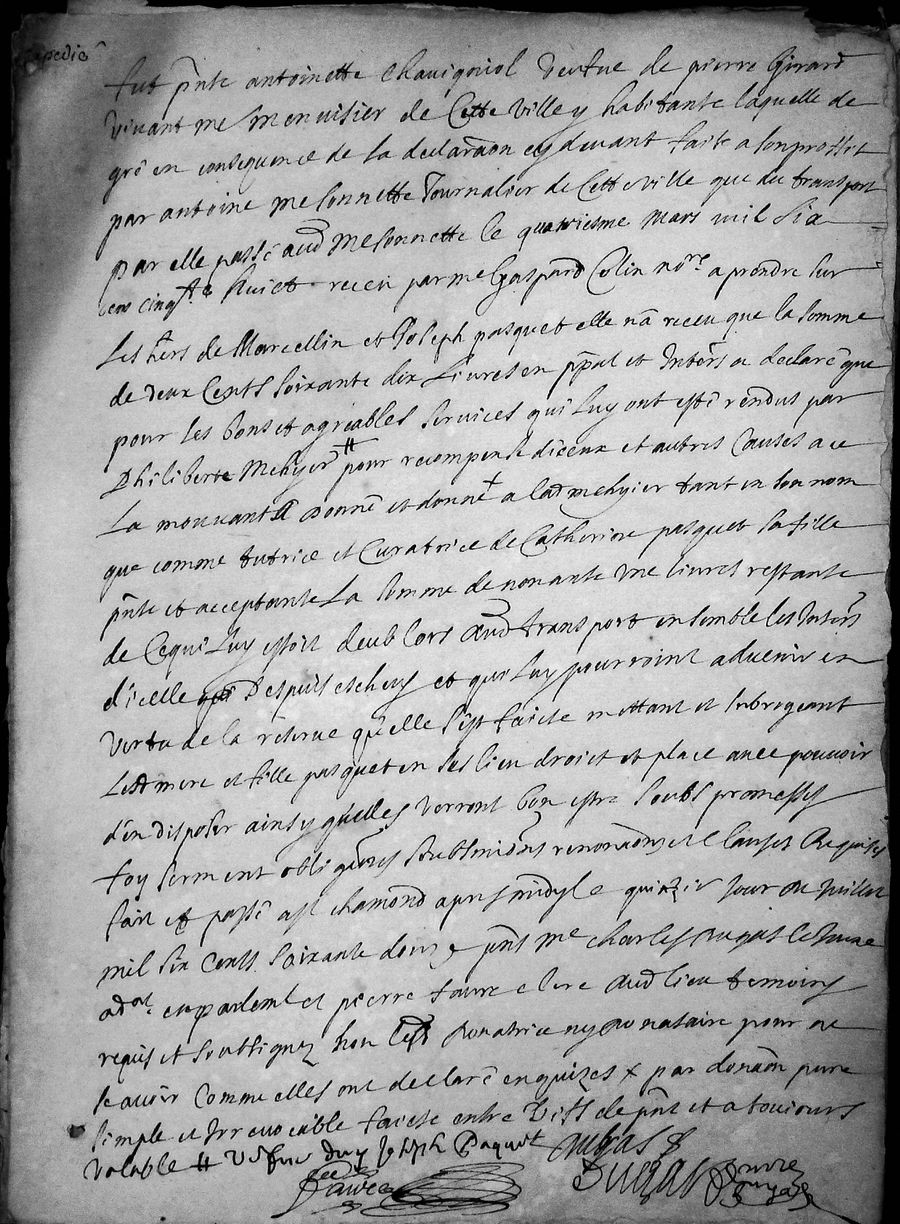 expedié
fut pnte antoinette Chavignol veufve de pierre Girard
vivant me menuisier de Cette ville y habitante laquelle de
gré en consequence de la declaraon cy devant faite a son proffit
par antoine mesonnette Journalier de Cette ville que du transport
par elle passé aud mesonnette le quatriesme mars mil six
cens cinqte & huict receu par me Gaspard Colin nore a prendre sur
Les hers de Marcellin et Joseph pasquet elle na receu que la somme
de deux Cents soixante dix Livres en ppal et Interets a declaré que
pour les bons et agreables services qui Luy ont esté rendus par
Philiberte Mehyer # pour recompense diceux et autres Causes a ce
La mouvant a donné et donne + a lad mehyier tant en son nom
que comme tutrice et Curatrice de Catherine pasquet sa fille
pnte et acceptante La somme de nonante une livres restante
de Cequi Luy estoit deub lors dud transport ensemble les Interets
d'icelle despuis escheus et qui Luy pourroint advenir en
vertu de la reserve qu'elle s'est faicte mettant et subrogeant
Lesd mere et fille pasquet en ses lieu droict et place avec pouvoir
d'en disposer ainsy qu'elles verront bon estre soubs promesses
foy serment obligaons soubmissions renonciaons et Clauses Requises
fait et passé a st chamond apres midy le quinziesme Jour de Juillet
mil six Cents soixante douze pnts me charles Dugas le Jeune
adat en parlemt et pierre favre clerc dud lieu temoins
requis et soubsignez non lesd donatrice ny donataire pour ne
scavoir Comme elles ont declaré enquizes x par donaon pure
simple et Irrevocable faicte entre vifs de pnt et a tousjours
valable # vefve duy Joseph Paquet
Dugas
Favre
Dugas